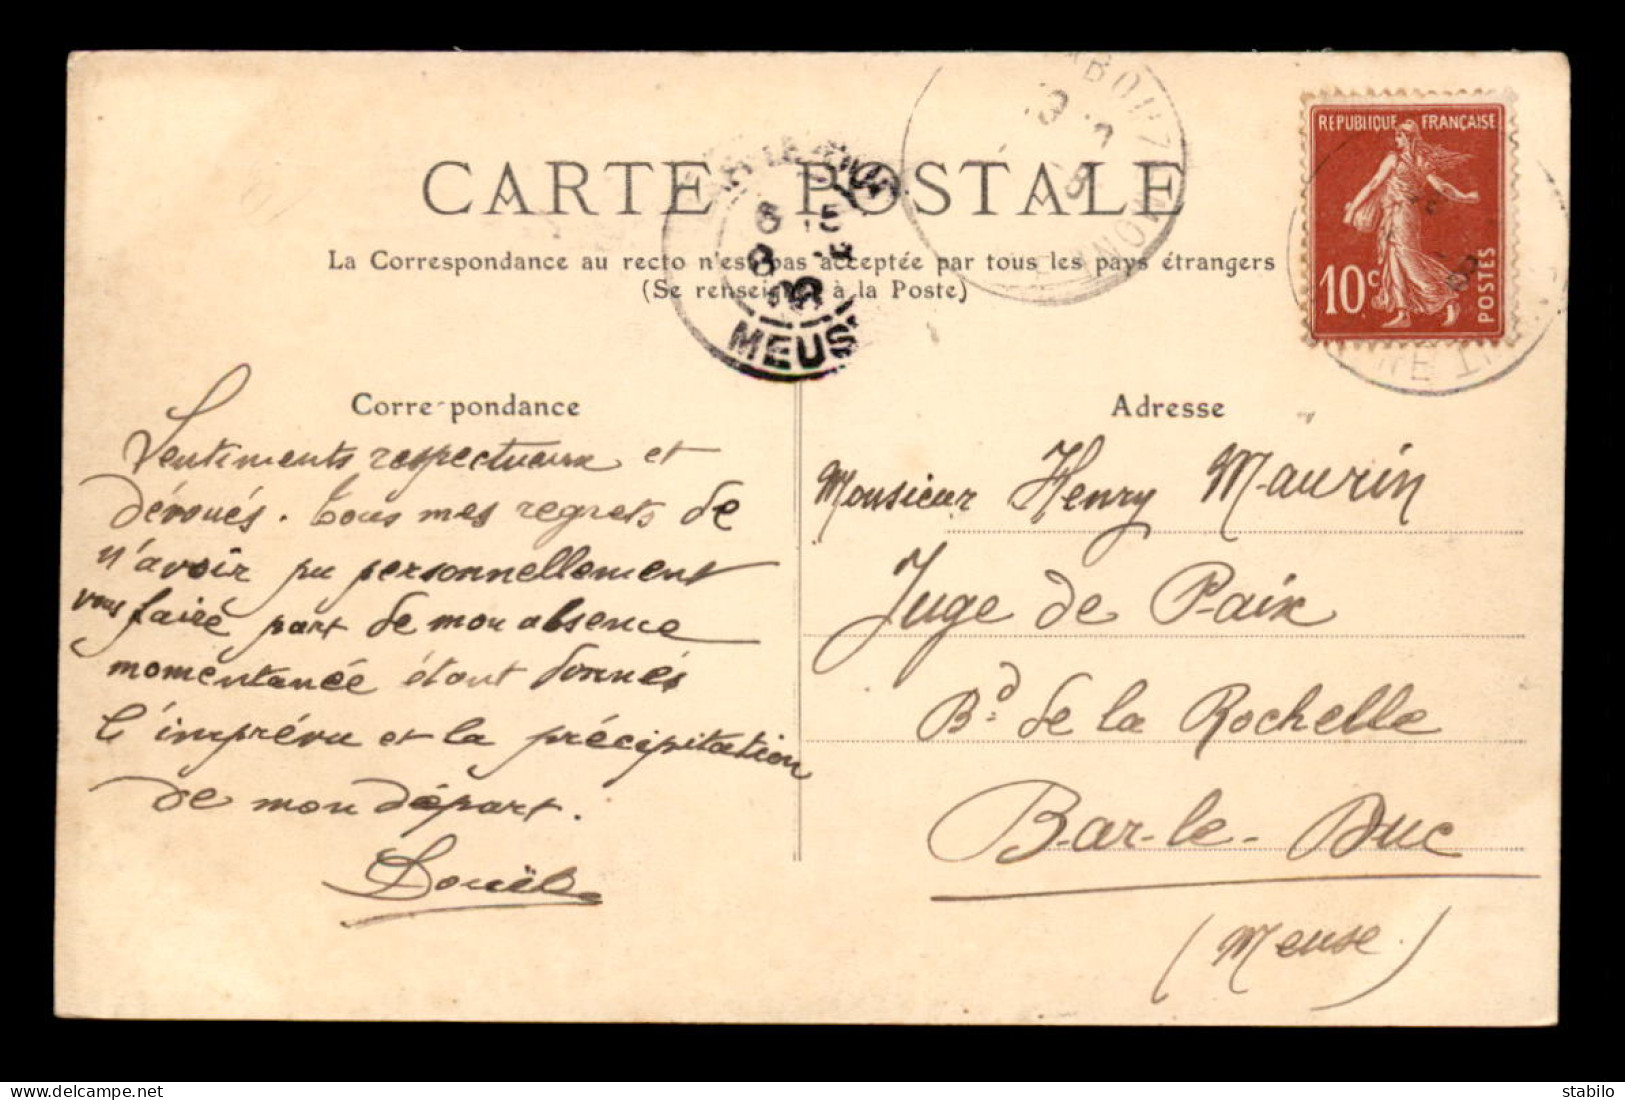 CARTE POSTALE
La Correspondance au recto n'est pas acceptée par tous les pays étrangers
(Se renseigner à la Poste)
REPUBLIQUE FRANÇAISE
10c
POSTES
MEUSE
Correspondance
Sentiments respectueux et
dévoués. Tous mes regrets de
n'avoir pu personnellement
vous faire part de mon absence
momentanée étant donnés
l'imprévu et la précipitation
de mon départ.
Adresse
Monsieur Henry Maurin
Juge de Paix
Bd. de la Rochelle
Bar-le-Duc
(Meuse.)
delcampe.net
stabilo